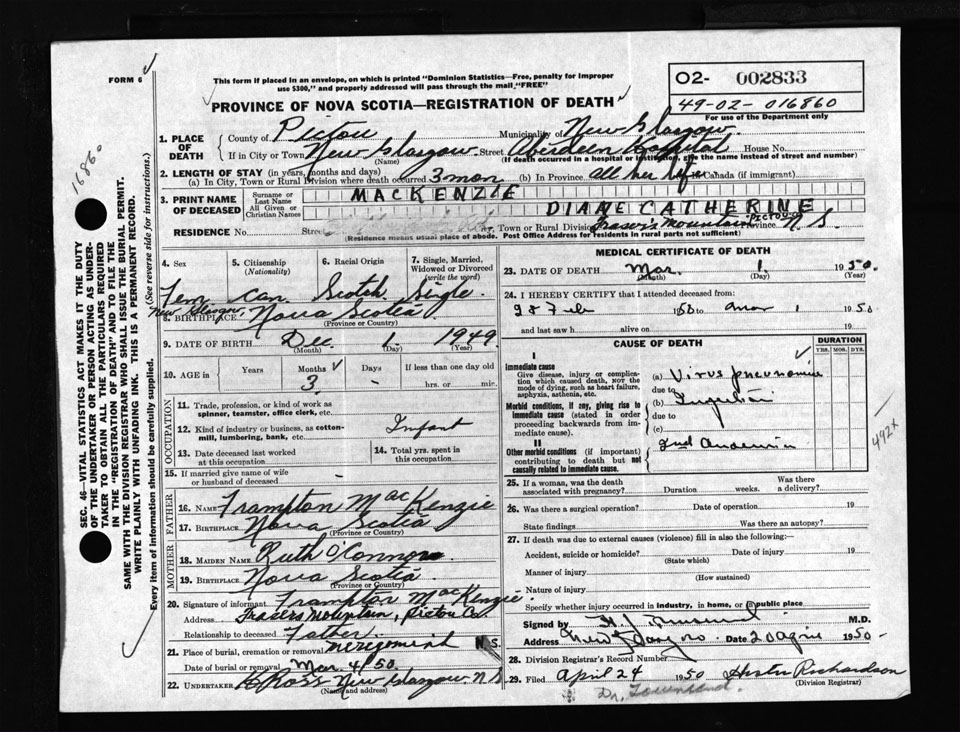 FORM 6
This form if placed in an envelope, on which is printed "Dominion Statistics—Free, penalty for improper
use $300," and properly addressed will pass through the mail, "FREE"
O2- 002833
49-02-016860
For use of the Department only
PROVINCE OF NOVA SCOTIA—REGISTRATION OF DEATH
16860
1. PLACE OF DEATH
County of Pictou Municipality of New Glasgow
If in City or Town New Glasgow Street Aberdeen Hospital House No.
(Name) (If death occurred in a hospital or institution, give the name instead of street and number)
2. LENGTH OF STAY (in years, months and days)
(a) In City, Town or Rural Division where death occurred 3 mon (b) In Province all her life Canada (if immigrant)
3. PRINT NAME OF DECEASED
Surname or Last Name MACKENZIE
All Given or Christian Names DIANE CATHERINE
RESIDENCE No. Street City, Town or Rural Division Frasers Mountain Pictou Co Province N.S.
(Residence means usual place of abode. Post Office Address for residents in rural parts not sufficient)
4. Sex
Fem.
5. Citizenship (Nationality)
Can.
6. Racial Origin
Scotch
7. Single, Married, Widowed or Divorced (write the word)
Single.
8. BIRTHPLACE New Glasgow, Nova Scotia
(Province or Country)
9. DATE OF BIRTH Dec. 1. 1949
(Month) (Day) (Year)
10. AGE in Years Months Days If less than one day old
3 - hrs. or min.
OCCUPATION
11. Trade, profession, or kind of work as spinner, teamster, office clerk, etc.
12. Kind of industry or business, as cotton-mill, lumbering, bank, etc. Infant
13. Date deceased last worked at this occupation
14. Total yrs. spent in this occupation
15. If married give name of wife or husband of deceased -
FATHER
16. NAME Frampton MacKenzie
17. BIRTHPLACE Nova Scotia
MOTHER
18. MAIDEN NAME Ruth O'Connor
19. BIRTHPLACE Nova Scotia
(Province or Country)
20. Signature of informant Frampton MacKenzie
Address Frasers Mountain, Pictou Co.
Relationship to deceased Father
21. Place of burial, cremation or removal Merigomish N.S.
Date of burial or removal Mar. 4/50
22. UNDERTAKER Ross New Glasgow. N.S
(Name and address)
MEDICAL CERTIFICATE OF DEATH
23. DATE OF DEATH Mar. 1. 1950.
(Month) (Day) (Year)
24. I HEREBY CERTIFY that I attended deceased from:
28 Feb 1950 to Mar 1 1950
and last saw h alive on 19
CAUSE OF DEATH
DURATION
YRS. MOS. DYS.
I
Immediate cause
Give disease, injury or complication which caused death, NOT the mode of dying, such as heart failure, asphyxia, asthenia, etc.
(a) Virus pneumonia
due to
Morbid conditions, if any, giving rise to immediate cause (stated in order proceeding backwards from immediate cause).
(b)
due to
(c)
II
Other morbid conditions (if important) contributing to death but not causally related to immediate cause.
492x
25. If a woman, was the death associated with pregnancy? Duration weeks. Was there a delivery?
26. Was there a surgical operation? Date of operation 19
State findings Was there an autopsy?
27. If death was due to external causes (violence) fill in also the following:—
Accident, suicide or homicide? Date of injury 19
(State which)
Manner of injury
(How sustained)
Nature of injury
Specify whether injury occurred in industry, in home, or in public place
Signed by M.D.
Address New Glasgow Date 20 April 1950
28. Division Registrar's Record Number
29. Filed April 24 1950 Hester Richardson
(Division Registrar)
Dr. Townsend.
SEC. 46—VITAL STATISTICS ACT MAKES IT THE DUTY
OF THE UNDERTAKER OR PERSON ACTING AS UNDER-
TAKER TO OBTAIN ALL THE PARTICULARS REQUIRED
IN THE "REGISTRATION OF DEATH" AND TO FILE THE
SAME WITH THE DIVISION REGISTRAR WHO SHALL ISSUE THE BURIAL PERMIT.
WRITE PLAINLY WITH UNFADING INK. THIS IS A PERMANENT RECORD.
Every item of information should be carefully supplied. (See reverse side for instructions.)